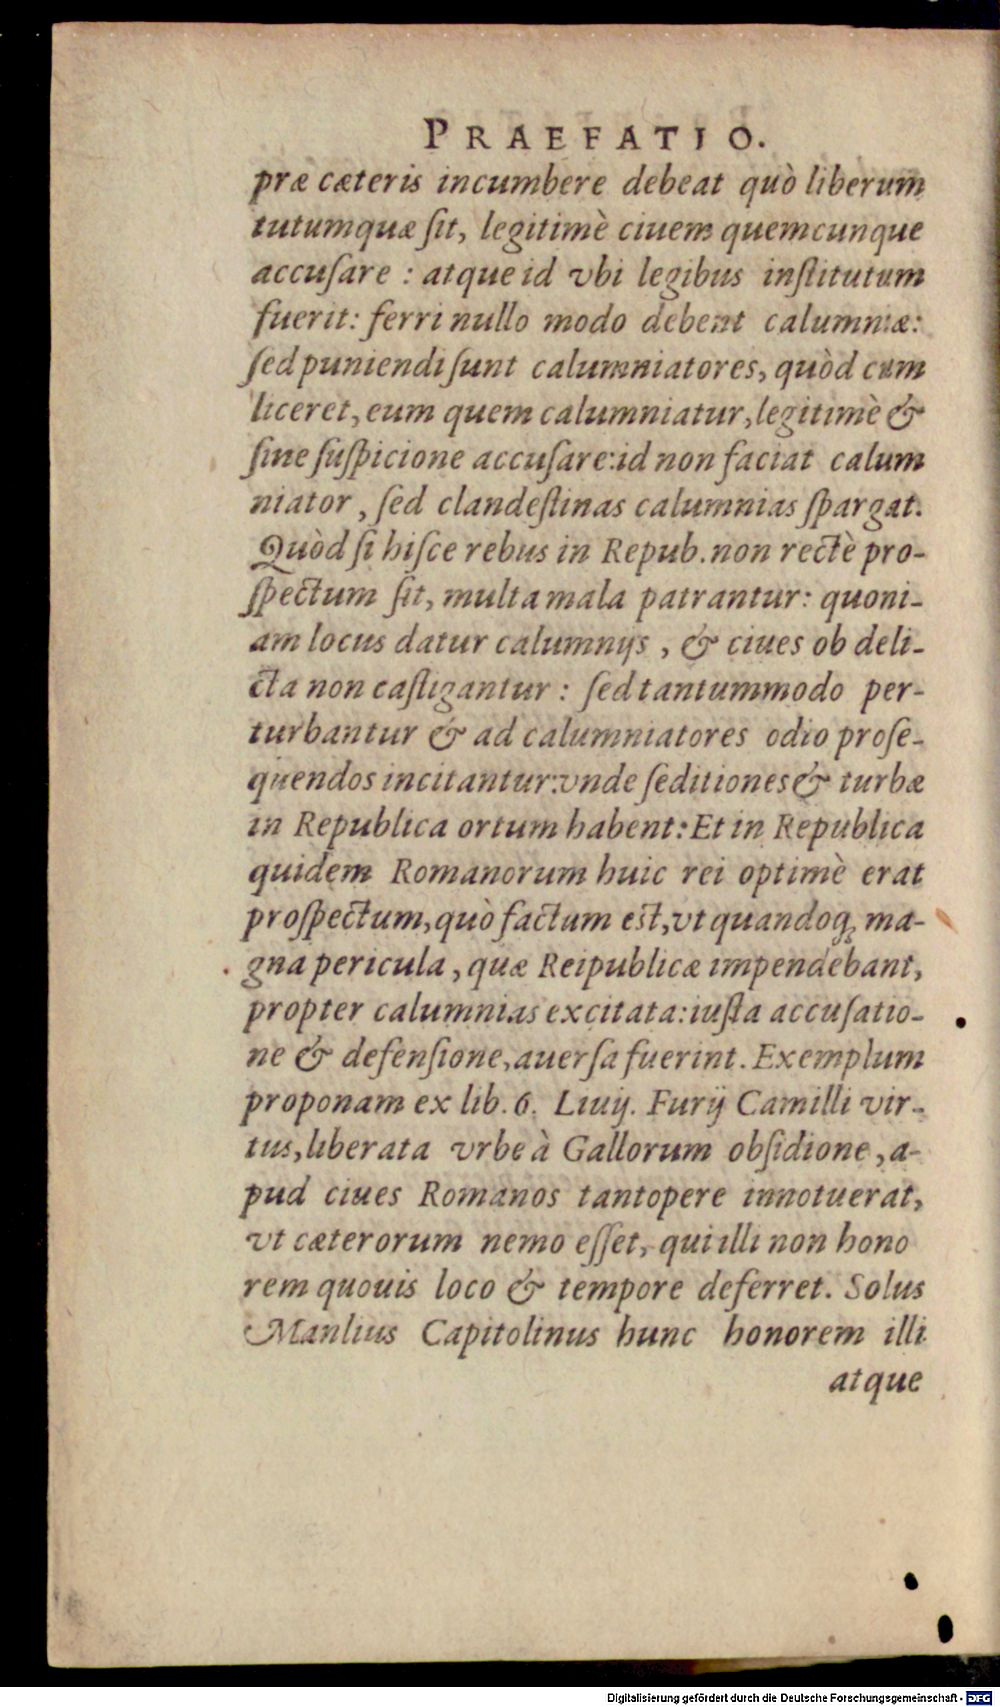 PRAEFATIO.
præ cæteris incumbere debeat quò liberum
tutumquæ ſit, legitimè ciuem quemcunque
accuſare : atque id vbi legibus inſtitutum
fuerit: ferri nullo modo debent calumniæ:
ſed puniendi ſunt calumniatores, quòd cum
liceret, eum quem calumniatur, legitimè &
ſine ſuſpicione accuſare: id non faciat calum
niator, ſed clandeſtinas calumnias ſpargat.
Quòd ſi hiſce rebus in Repub. non rectè pro-
ſpectum ſit, multa mala patrantur: quoni-
am locus datur calumnijs, & ciues ob deli-
cta non caſtigantur : ſed tantummodo per-
turbantur & ad calumniatores odio proſe-
quendos incitantur: vnde ſeditiones & turbæ
in Republica ortum habent: Et in Republica
quidem Romanorum huic rei optimè erat
proſpectum, quò factum est, vt quandoq; ma-
gna pericula, quæ Reipublicæ impendebant,
propter calumnias excitata: iuſta accuſatio-
ne & defenſione, auerſa fuerint. Exemplum
proponam ex lib. 6. Liuij. Furij Camilli vir-
tus, liberata vrbe à Gallorum obſidione, a-
pud ciues Romanos tantopere innotuerat,
vt cæterorum nemo eſſet, qui illi non hono
rem quouis loco & tempore deferret. Solus
Manlius Capitolinus hunc honorem illi
atque
Digitalisierung gefördert durch die Deutsche Forschungsgemeinschaft - DFG